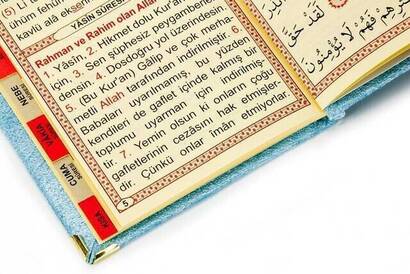 (5) Li
kavlü alâ ekse
YÂSÎN SÛRES
Rahman ve Rahim olan Alla
1. Yâsîn. 2. Hikmet dolu Kur'an
için, 3. Sen şüphesiz peygamberle
densin. 4. Dosdoğru yol üzerindesin.
5. (Bu Kur'an) Gâlip ve çok merha-
metli Allah tarafından indirilmiştir. 6.
Babaları uyarılmamış, bu yüzden
kendileri de gaflet içinde kalmış bir
toplumu uyarman için indirilmiş-
tir. 7. Yemin olsun ki onların çoğu
gafletlerinin cezâsını hak etmişler-
dir. Çünkü onlar îmân etmiyorlar.
5
NEBE
SÛRESİ
VÂKIA
CUMA
SÛRESİ
KISA
لَقَدْ حَقَّ
فَهُمْ لَا يُؤْمِنُونَ